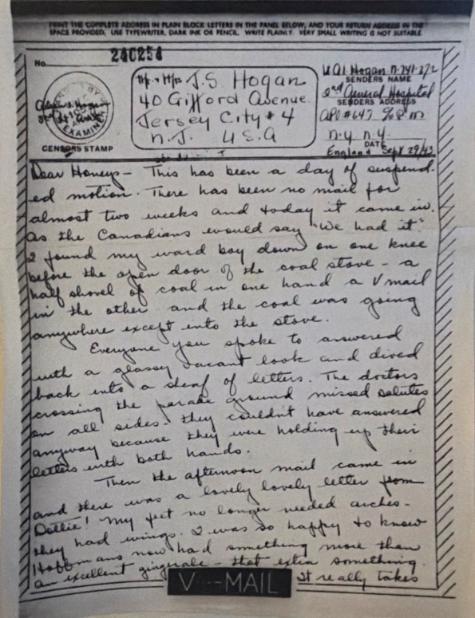 PRINT THE COMPLETE ADDRESS IN PLAIN BLOCK LETTERS IN THE PANEL BELOW, AND YOUR RETURN ADDRESS IN THE
SPACE PROVIDED. USE TYPEWRITER, DARK INK OR PENCIL. WRITE PLAINLY. VERY SMALL WRITING IS NOT SUITABLE.
No.
240254
EXAMINER
CENSOR'S STAMP
Mr + Mrs J.S. Hogan
40 Gifford Avenue
Jersey City #4
N.J. U.S.A
Hogan N-741-272
SENDER'S NAME
2nd General Hospital
SENDER'S ADDRESS
APO #647 % P.M
N-Y N.Y.
DATE
England Sept 29/43
Dear Honeys - This has been a day of suspend-
ed motion. There has been no mail for
almost two weeks and today it came in.
As the Canadians would say "We had it"
I found my ward boy down on one knee
before the open door of the coal stove - a
half shovel of coal in one hand a V mail
in the other and the coal was going
anywhere except into the stove.
Everyone you spoke to answered
with a glassy vacant look and dived
back into a sheaf of letters. The doctors
crossing the parade ground missed salutes
on all sides - they couldn't have answered
anyway because they were holding up their
letters with both hands.
Then the afternoon mail came in
and there was a lovely lovely letter from
Dollie! My feet no longer needed arches -
they had wings. I was so happy to know
now had something more than
an excellent gingerale - that extra something.
It really takes
V···-MAIL